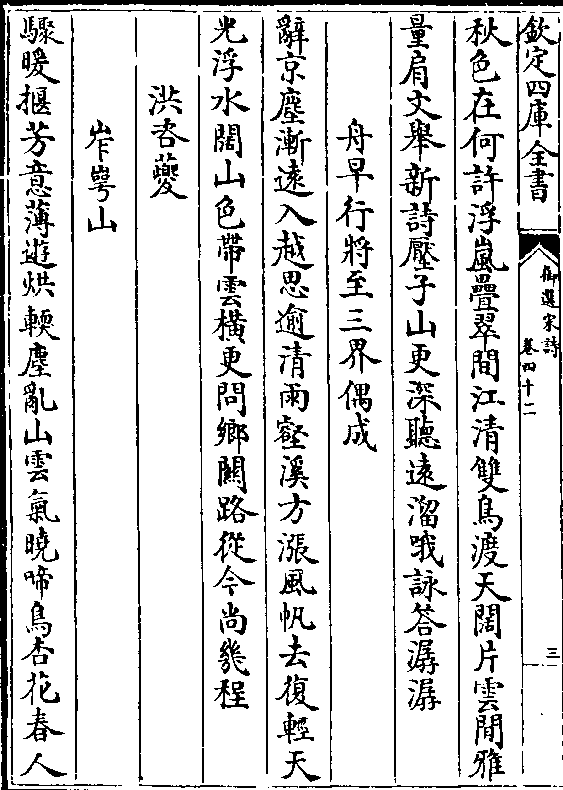 欽定四庫全書
御選宋詩
卷四十二
三
秋色在何許浮嵐疊翠間江清雙鳥渡天闊片雲閒雅
量肩文舉新詩壓子山更深聽遠溜哦詠答潺潺
舟早行將至三界偶成
辭京塵漸遠入越思逾清雨壑溪方漲風帆去復輕天
光浮水闊山色帶雲橫更問鄉關路從今尚幾程
洪咨夔
岝崿山
驟暖搌芳意薄遊烘輭塵亂山雲氣曉啼鳥杏花春人